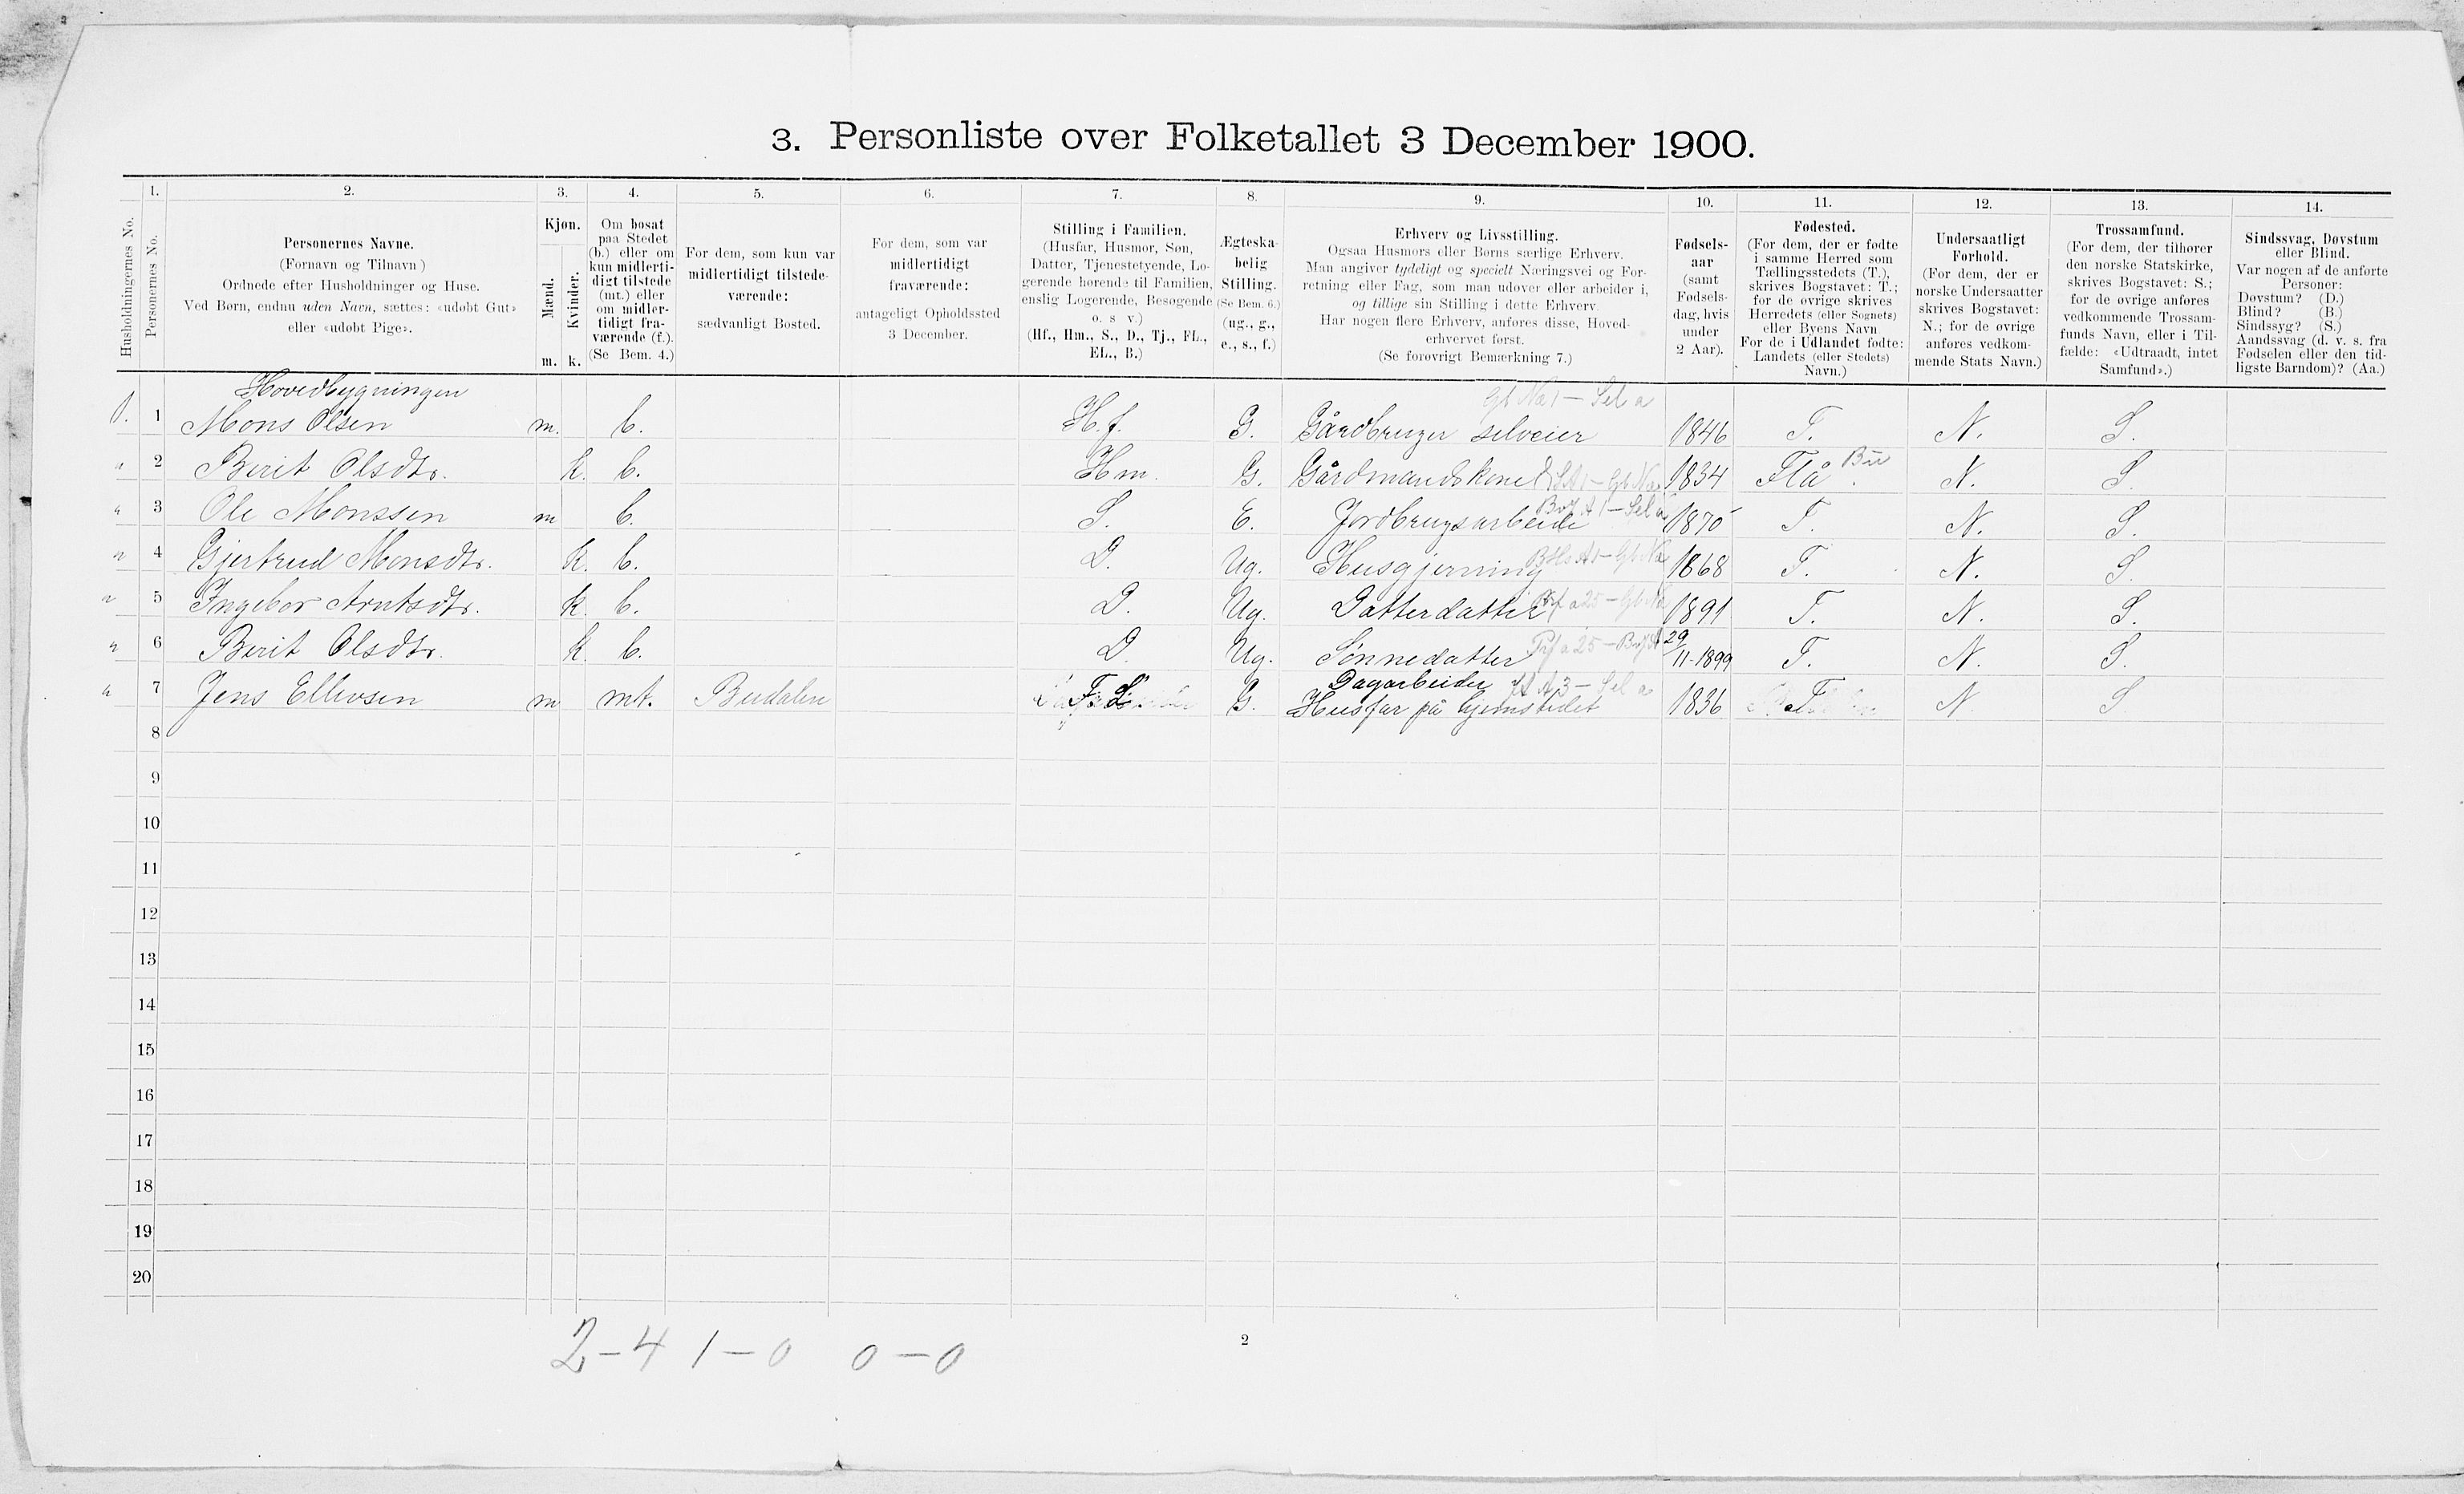 3. Personliste over Folketallet 3 December 1900.
Husholdningernes No.
1.
Personernes No.
2.
Personernes Navne.
(Fornavn og Tilnavn)
Ordnede efter Husholdninger og Huse.
Ved Børn, endnu uden Navn, sættes: «udøbt Gut»
eller «udøbt Pige».
3.
Kjøn.
Mænd.
Kvinder.
m. k.
4.
Om bosat
paa Stedet
(b.) eller om
kun midlerti-
digt tilstede
(mt.) eller
om midler-
tidigt fra-
værende (f.).
(Se Bem. 4.)
5.
For dem, som kun var
midlertidigt tilstede-
værende:
sædvanligt Bosted.
6.
For dem, som var
midlertidigt
fraværende:
antageligt Opholdssted
3 December.
7.
Stilling i Familien.
(Husfar, Husmor, Søn,
Datter, Tjenestetyende, Lo-
gerende hørende til Familien,
enslig Logerende, Besøgende
o. s v.)
(Hf., Hm., S., D., Tj., FL.,
EL., B.)
8.
Ægteska-
belig
Stilling.
(Se Bem. 6.)
(ug., g.,
e., s., f.)
9.
Erhverv og Livsstilling.
Ogsaa Husmors eller Børns særlige Erhverv.
Man angiver tydeligt og specielt Næringsvei og For-
retning eller Fag, som man udøver eller arbeider i,
og tillige sin Stilling i dette Erhverv.
Har nogen flere Erhverv, anføres disse, Hoved-
erhvervet først.
(Se forøvrigt Bemærkning 7.)
10.
Fødsels-
aar
(samt
Fødsels-
dag, hvis
under
2 Aar).
11.
Fødested.
(For dem, der er fødte
i samme Herred som
Tællingsstedets (T.),
skrives Bogstavet: T.;
for de øvrige skrives
Herredets (eller Sognets)
eller Byens Navn
For de i Udlandet fødte:
Landets (eller Stedets)
Navn.)
12.
Undersaatligt
Forhold.
(For dem, der er
norske Undersaatter
skrives Bogstavet:
N.; for de øvrige
anføres vedkom-
mende Stats Navn.)
13.
Trossamfund.
(For dem, der tilhører
den norske Statskirke,
skrives Bogstavet: S.;
for de øvrige anføres
vedkommende Trossam-
funds Navn, eller i Til-
fælde: «Udtraadt, intet
Samfund».)
14.
Sindssvag, Døvstum
eller Blind.
Var nogen af de anførte
Personer:
Døvstum? (D.)
Blind? (B.)
Sindssyg? (S.)
Aandssvag (d. v. s. fra
Fødselen eller den tid-
ligste Barndom)? (Aa.)
Hovedbygningen
1. 1 Mons Olsen m. b. H.f. G. Gårdbruger selveier 1846 T. N. S.
" 2 Berit Olsdtr. k. b. Hm. G. Gårdmandskone 1834 Flå. Bu N. S.
" 3 Ole Monssen m b. S. E. Jordbrugsarbeide 1870 T. N. S.
" 4 Gjertrud Monsdtr. k. b. D. Ug. Husgjerning 1868 T. N. S.
" 5 Ingebor Arntsdtr. k. b. D. Ug. Datterdatter 1891 T. N. S.
" 6 Berit Olsdtr. k. b. D. Ug. Sønnedatter 29/11-1899 T. N. S.
" 7 Jens Ellevsen m mt. Budalen FL G. Dagarbeider
Husfar på hjemstedet 1836 T N. S
8
9
10
11
12
13
14
15
16
17
18
19
20
2-4 1-0 0-0
2